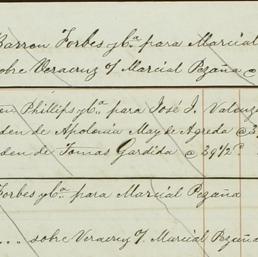 Barron Forbes y Ca. para Marcial
sobre Veracruz o/ Marcial Pezaña @
Phillips y Ca. para José I. Valenz
den de Apolonia May de Agreda @ 3
den de Tomas Gardida @ 39 1/2 c.
Forbes y Ca. para Marcial Pezaña
.... sobre Veracruz o/ Marcial Pezaña